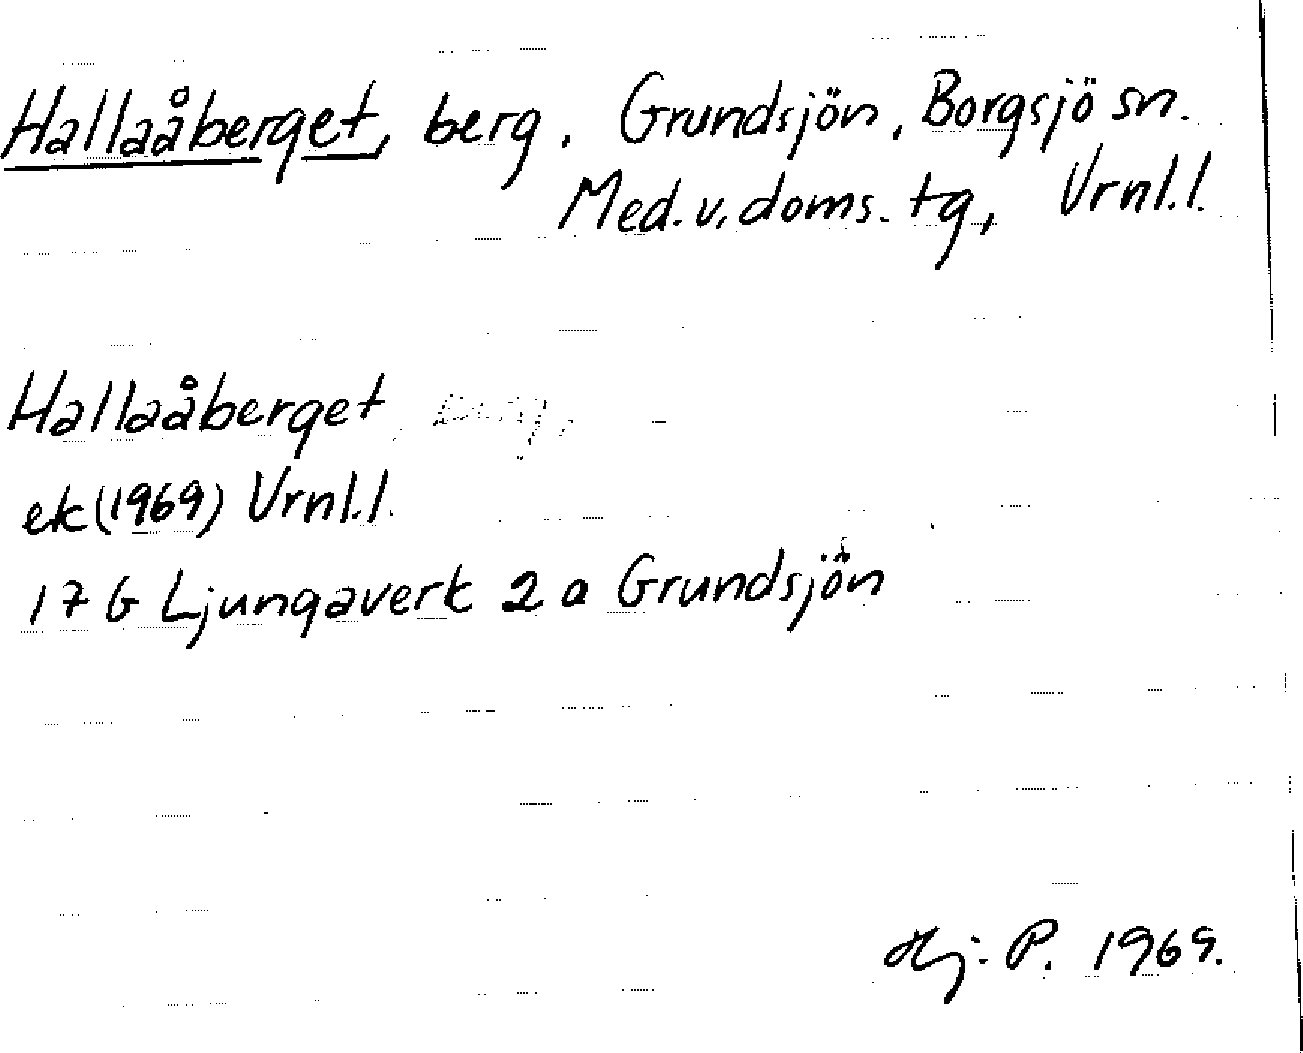 Hallaåberget, berg. Grundsjön, Borgsjö sn.
Med. v. doms. tg, Vrnl.l.
Hallaåberget, berg,
ek (1969) Vrnl.l.
17 G Ljungaverk 2 a Grundsjön
Hj. P. 1969.